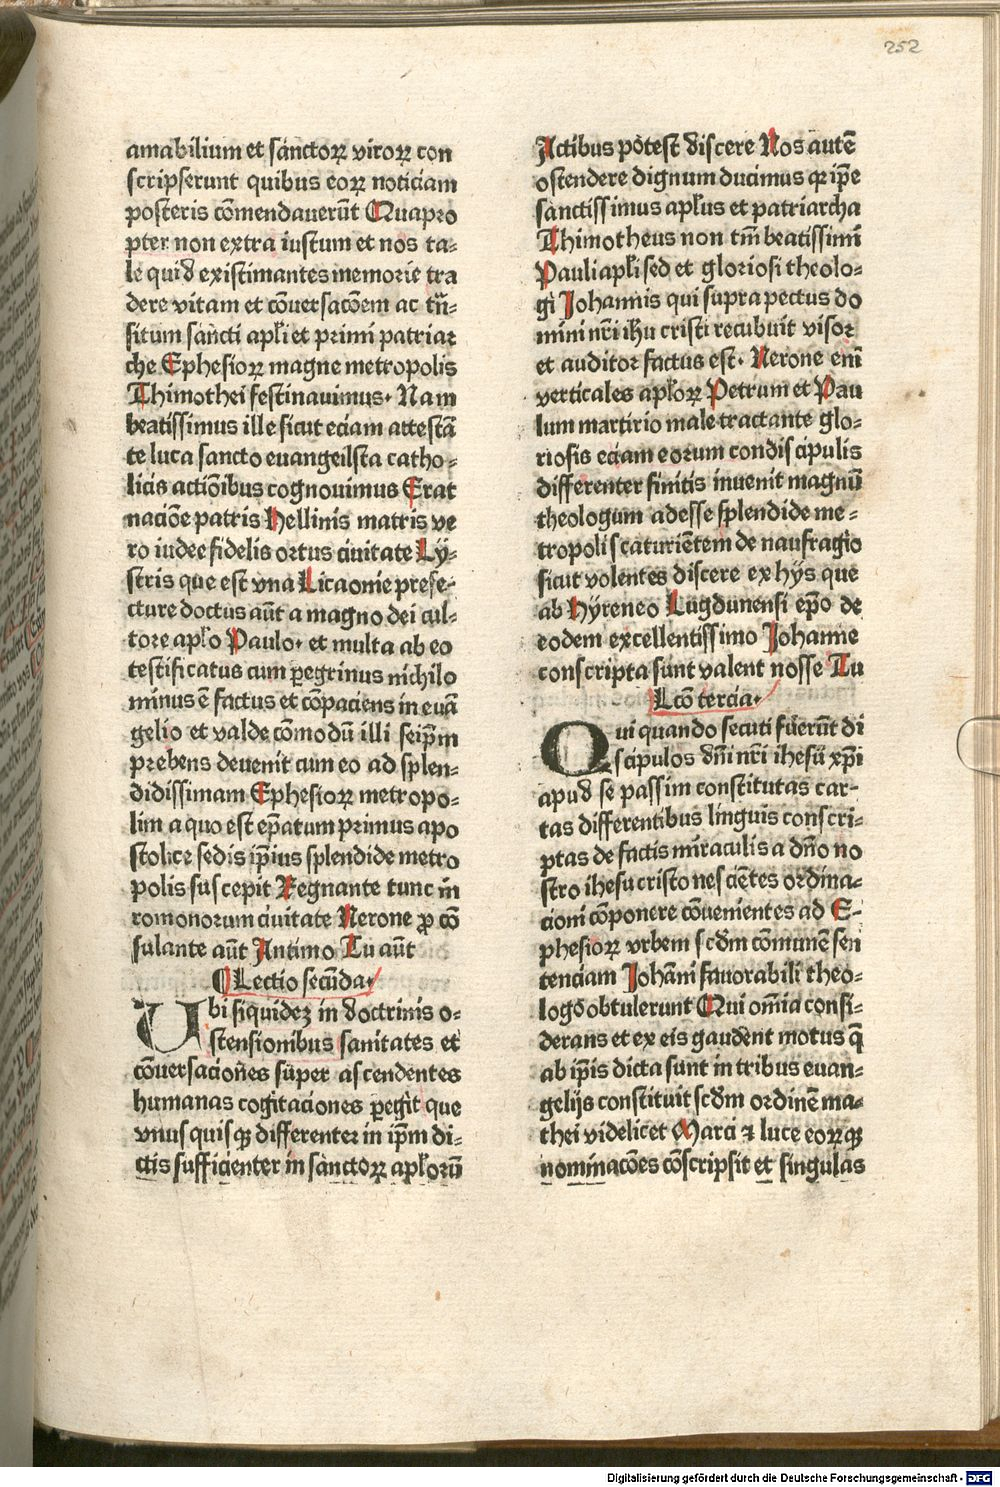 252
amabilium et sanctoꝝ viroꝝ con
scripserunt quibus eoꝝ noticiam
posteris cōmendauerūt Quapro
pter non extra iustum et nos ta⸗
le quid existimantes memorie tra
dere vitam et cōuersacōem ac trn̄⸗
situm sancti apl̄i et primi patriar
che Ephesioꝝ magne metropolis
Thimothei festinauimus. Nam
beatissimus ille sicut eciam attestā
te luca sancto euangeilsta catho⸗
licis actiōibus cognouimus Erat
naciōe patris Hellinis matris ve
ro iudee fidelis ortus ciuitate Lÿ⸗
stris que est vna Licaonie prefe⸗
cture doctus aūt a magno dei cul⸗
tore apl̄o Paulo. et multa ab eo
testificatus cum ꝑegrinus nichilo
minus ē factus et cōpaciens in euā
gelio et valde cōmodū illi seip̄m
prebens deuenit cum eo ad splen⸗
didissimam Ephesioꝝ metropo⸗
lim a quo est ep̄atum primus apo
stolice sedis ip̄ius splendide metro
polis suscepit Regnante tunc in
romonorum ciuitate Nerone ꝓ cō
sulante aūt Antimo Tu aūt
Lectio secūda.
Ubi siquidez in doctrinis o⸗
stensionibus sanitates et
cōuersaciōes super ascendentes
humanas cogitaciones ꝑegit que
vnus quisqꝫ differenter in ip̄m di⸗
ctis sufficienter in sanctoꝝ apl̄orū
Actibus potest discere Nos autē
ostendere dignum ducimus qꝛ ip̄e
sanctissimus apl̄us et patriarcha
Thimotheus non tm̄ beatissimi
Pauli apl̄i sed et gloriosi theolo⸗
gi Johannis qui supra pectus do
mini nr̄i ih̄u cristi recubuit visor
et auditor factus est. Nerone em̄
verticales apl̄oꝝ Petrum et Pau
lum martirio male tractante glo⸗
riosis eciam eorum condiscipulis
differenter finitis inuenit magnū
theologum adesse splendide me⸗
tropoli scaturiētem de naufragio
sicut volentes discere ex hÿs que
ab Hÿreneo Lugdunensi ep̄o de
eodem excellentissimo Johanne
conscripta sunt valent nosse Tu
Lcō tercia.
Qui quando secuti fuerūt di
scipulos dn̄i nr̄i ihesu xp̄i
apud se passim constitutas car⸗
tas differentibus linguis conscri⸗
ptas de factis miraculis a dn̄o no
stro ihesu cristo nesciētes ordina⸗
cioni cōponere cōuenientes ad E⸗
phesioꝝ vrbem scd̄m cōmunē sen
tenciam Johāni fauorabili theo⸗
logo obtulerunt Qui om̄ia consi⸗
derans et ex eis gaudent motus q̄
ab ip̄is dicta sunt in tribus euan⸗
gelijs constituit scd̄m ordinē ma⸗
thei videlicet Marci ⁊ luce eoꝝqꝫ
nominacōes cōscripsit et singulas
Digitalisierung gefördert durch die Deutsche Forschungsgemeinschaft - DFG